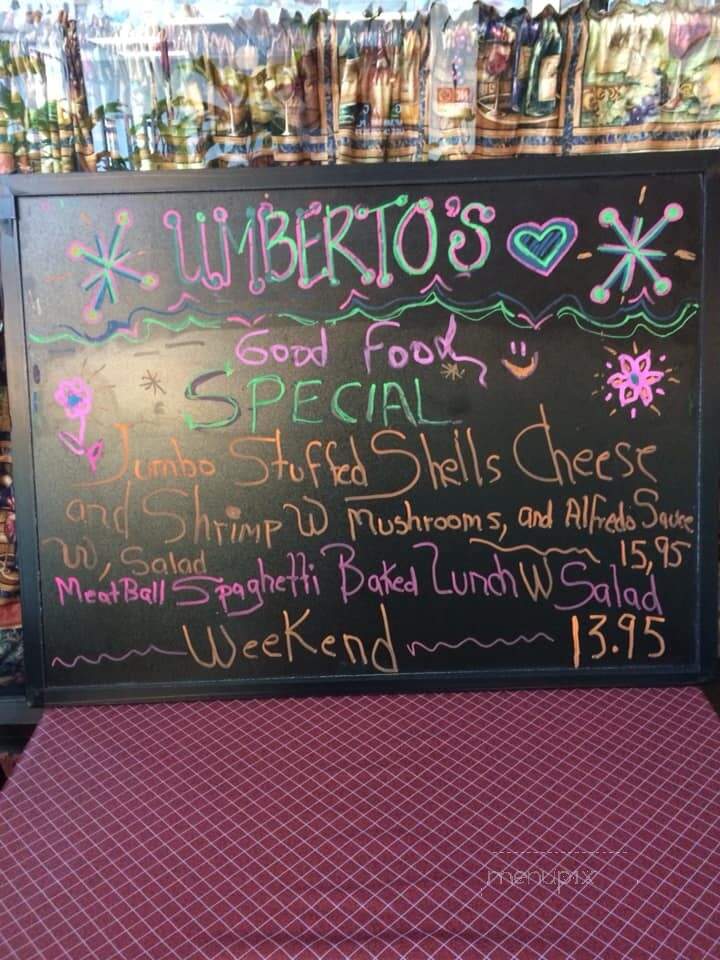 UMBERTO'S
Good Food
SPECIAL
Jumbo Stuffed Shells Cheese
and Shrimp W Mushrooms, and Alfredo Sauce
W, Salad 15,95
MeatBall Spaghetti Baked Lunch W Salad
Weekend 13.95
menupix